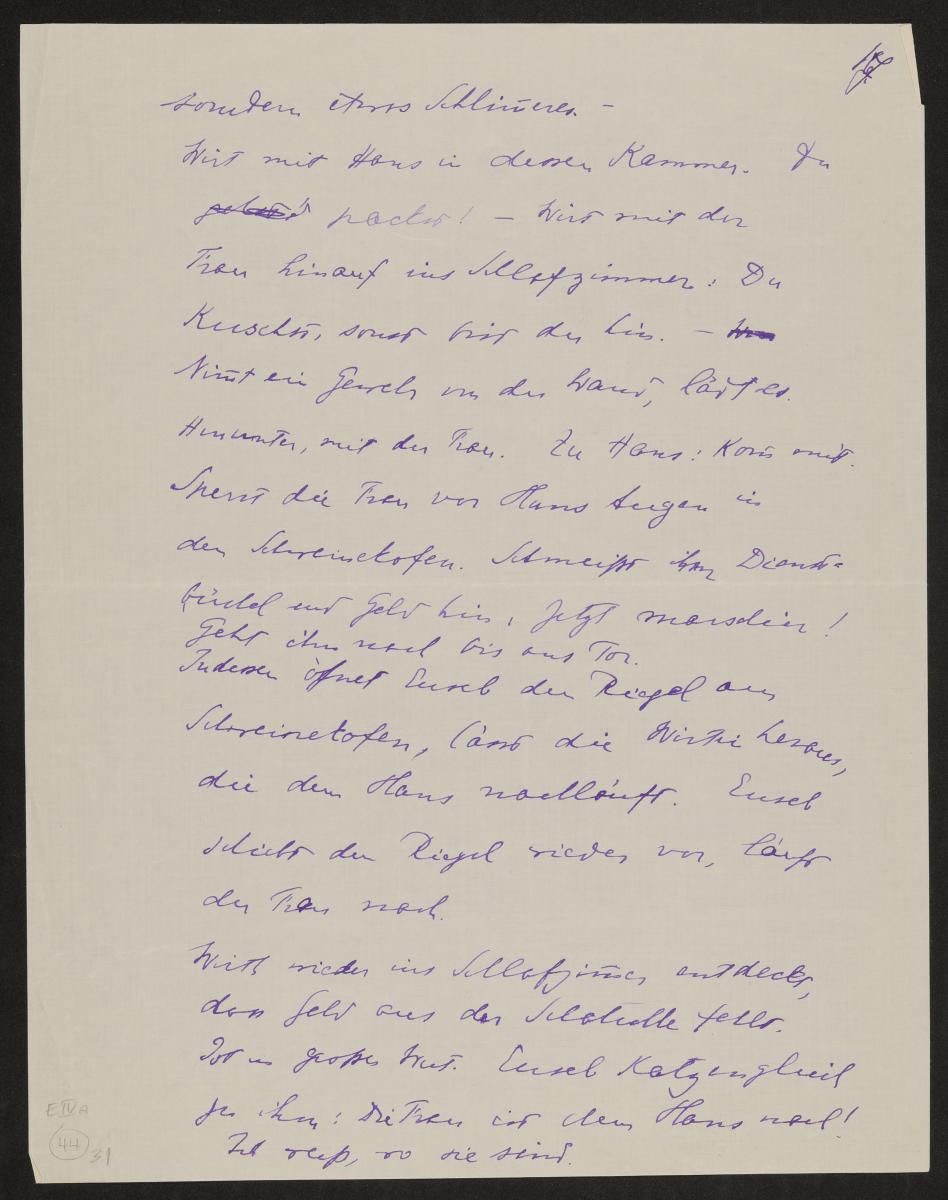 sondern etwas Schlim̅eres. –
Wirt mit Hans in dessen Kammer. Du
packst! – Wirt mit der
Frau hinauf ins Schlafzimmer: Du
Kuschst, sonst bist du hin. –
Nim̅t ein Gewehr von der Wand, lädt es.
Hinunter, mit der Frau. Zu Hans: Kom̅ mit.
Sperrt die Frau vor Hans Augen in
den Schweinekofen. Schmeisst ihm Dienst-
büchel und Geld hin, Jetzt marschier!
Geht ihm nach bis ans Tor.
Indessen öfnet Euseb den Riegel am
Schweinekofen, lässt die Wirtin heraus,
die dem Hans nachläuft. Euseb
schiebt den Riegel wieder vor, läuft
der Frau nach.
Wirth wieder ins Schlafzim̅er entdeckt,
dass Geld aus der Schatulle fehlt.
Ist in grosser Wut. Euseb
zu ihm: Die Frau ist dem Hans nach!
Ich weiss, wo sie sind.
E IV a
44
31